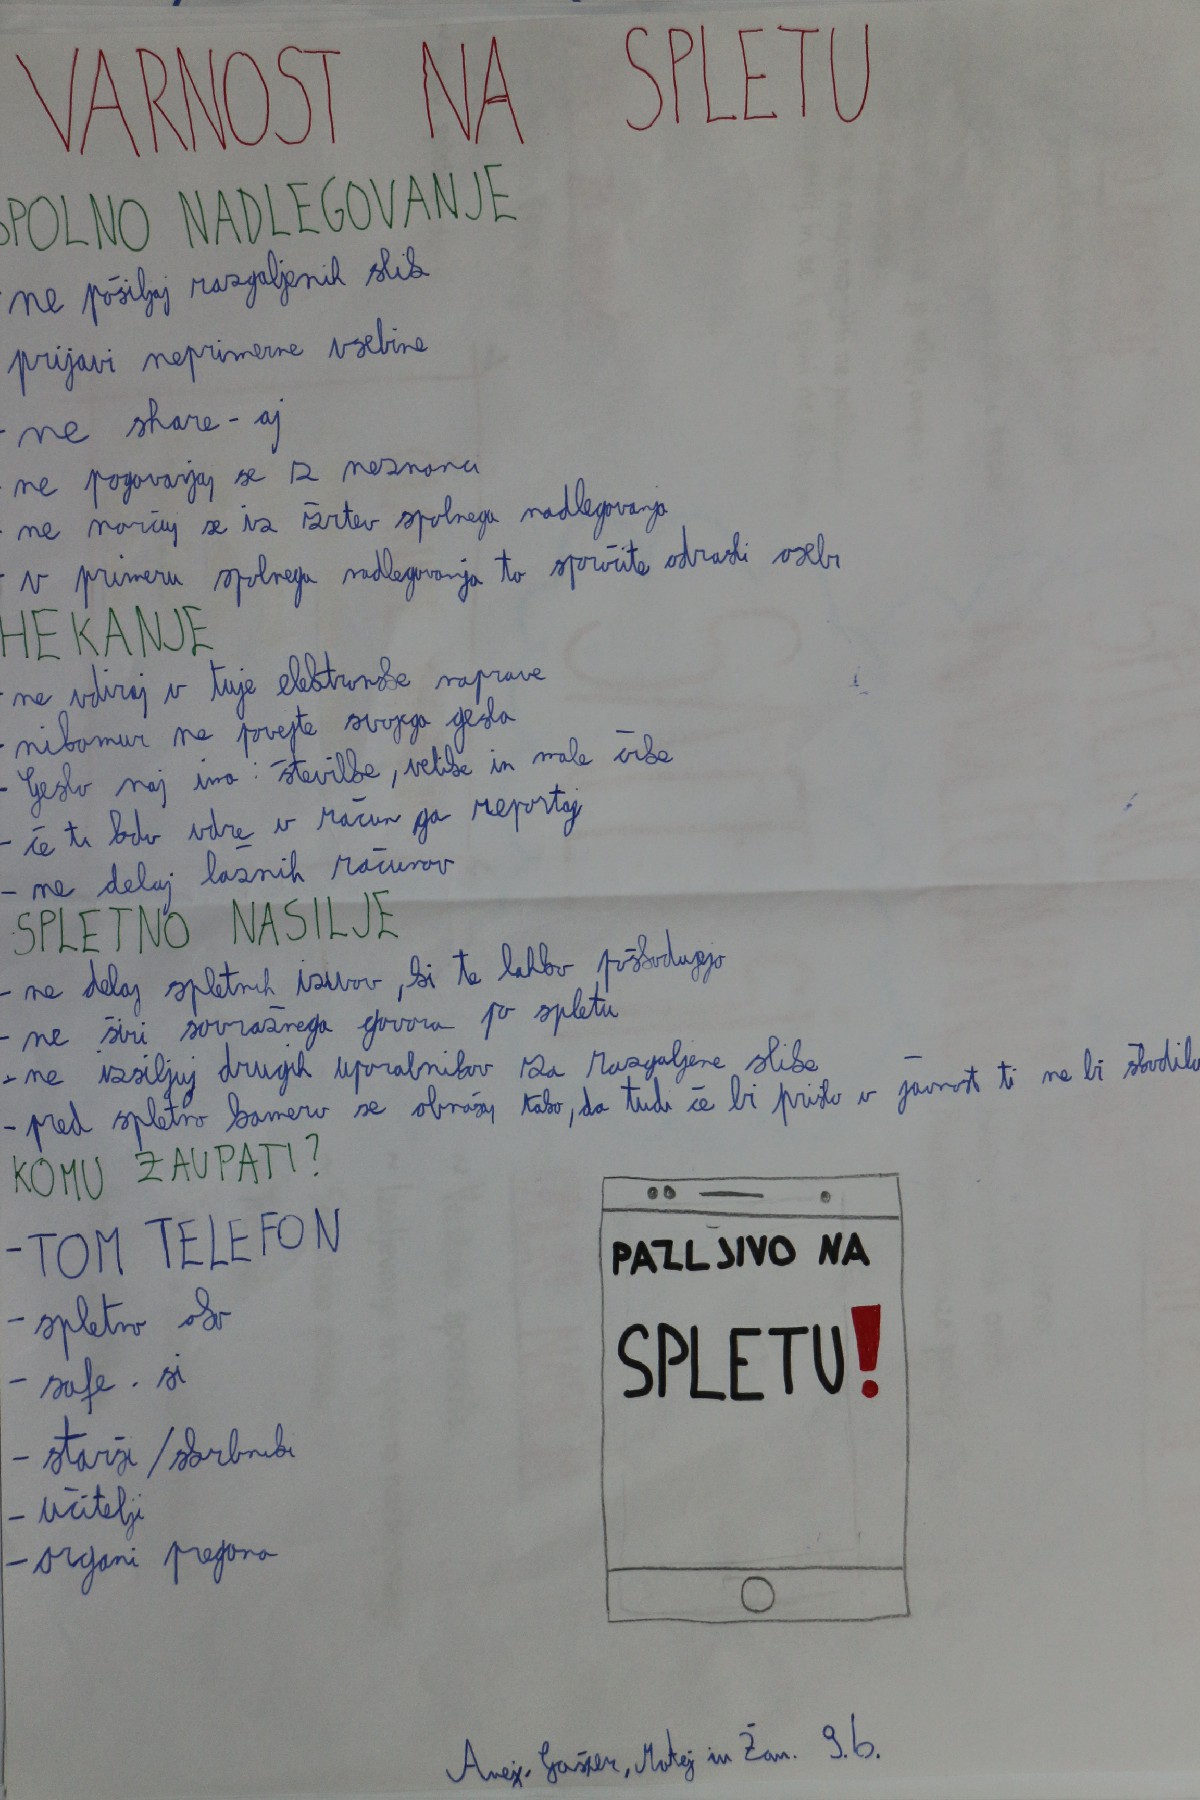 VARNOST NA SPLETU
SPOLNO NADLEGOVANJE
- ne pošiljaj razgaljenih slik
prijavi neprimerne vsebine
- ne share-aj
- ne pogovarjaj se iz neznanci
- ne norčuj se iz žrtev spolnega nadlegovanja
- v primeru spolnega nadlegovanja to sporočite odrasli osebi
HEKANJE
- ne vdiraj v tuje elektronske naprave
- nikomur ne povejte svojega gesla
- Geslo naj ima: številke, velike in male črke
- če ti kdo vdre v račun ga reportaj
- ne delaj lažnih računov
SPLETNO NASILJE
- ne delaj spletnih izivov, ki te lahko poškodujejo
- ne širi sovražnega govora po spletu
- ne izsiljuj drugih uporabnikov za razgaljene slike
- pred spletno kamero se obnašaj tako, da tudi če bi prišlo v javnost ti ne bi škodilo
KOMU ZAUPATI?
- TOM TELEFON
- spletno oko
- safe.si
- starši/skrbniki
- učitelji
- organi pregona
PAZLJIVO NA
SPLETU!
Anej, Gašper, Matej in Žan. 9.b.